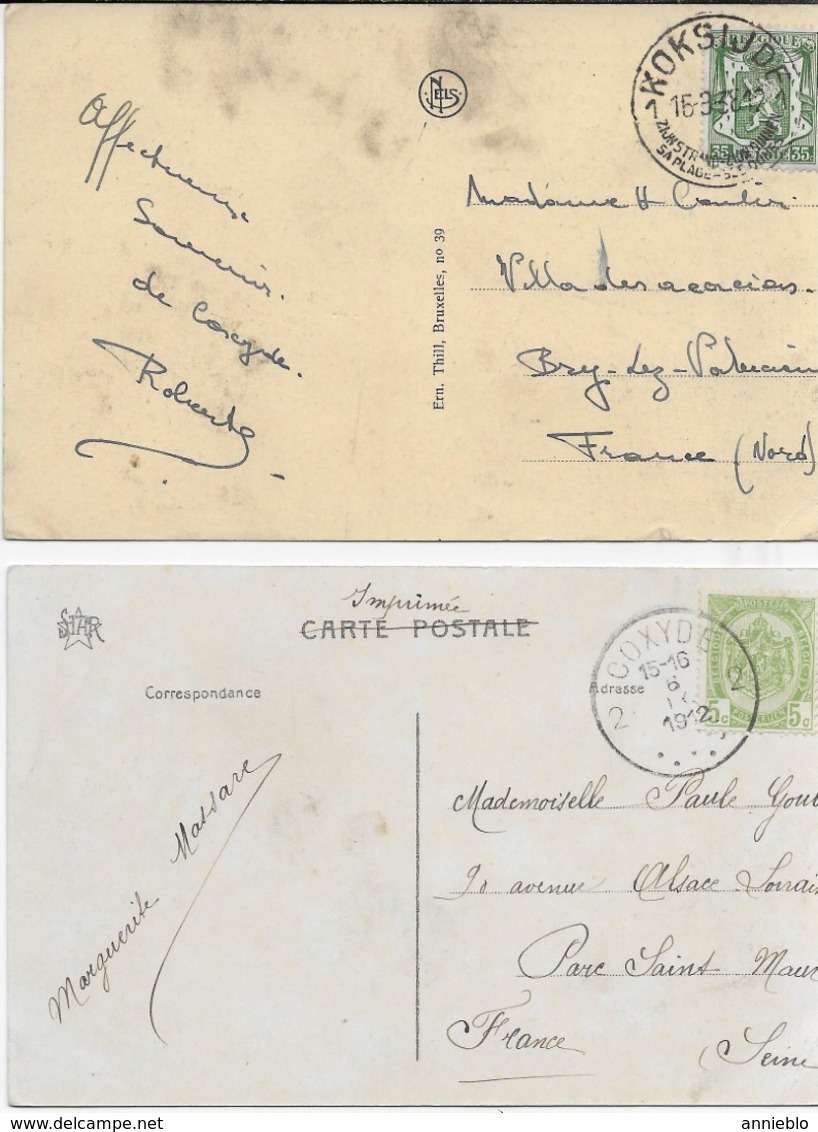 Affectueux
Souvenir
de Coxyde.
Roberte
NELS
Ern. Thill, Bruxelles, no 39
KOKSIJDE
BELGIQUE
35 35
SA PLAGE - SES DUNES
Madame H
Villa des acacias.
Bry-Lez-
France (Nord)
STAR
Imprimée
CARTE POSTALE
Correspondance
Adresse
COXYDE
15-16
6
1912
2 2
5c 5c
Marguerite Massare
Mademoiselle Paule Gou
90 avenue Alsace Lorrai
Parc Saint Mau
France (Seine
delcampe.net
annieblo